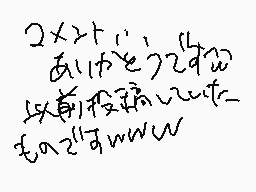 コメントいい
ありがとうですw
以前投稿していた
ものですwww